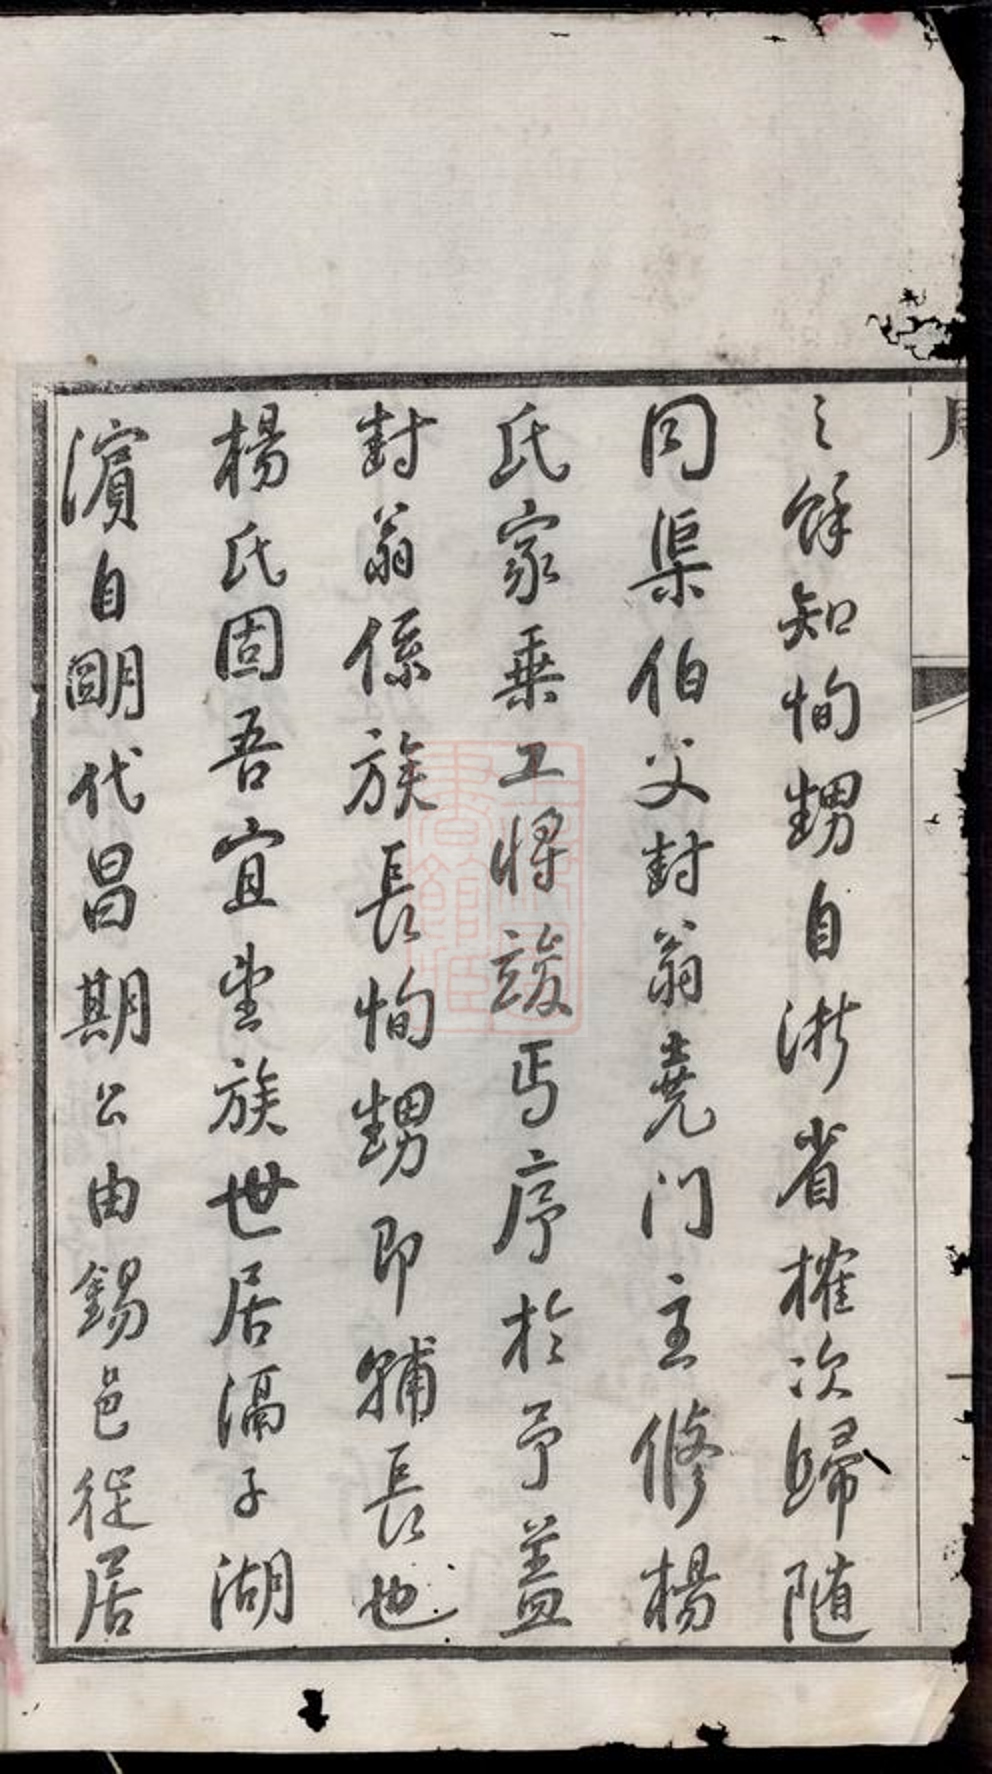 之餘知恂甥自浙省榷次歸随
同渠伯父封翁堯门主修楊
氏家乗工将竣焉序於予蓋
封翁係族長恂甥即輔長也
楊氏固吾宜望族世居滆子湖
濵自明代昌期公由錫邑從居